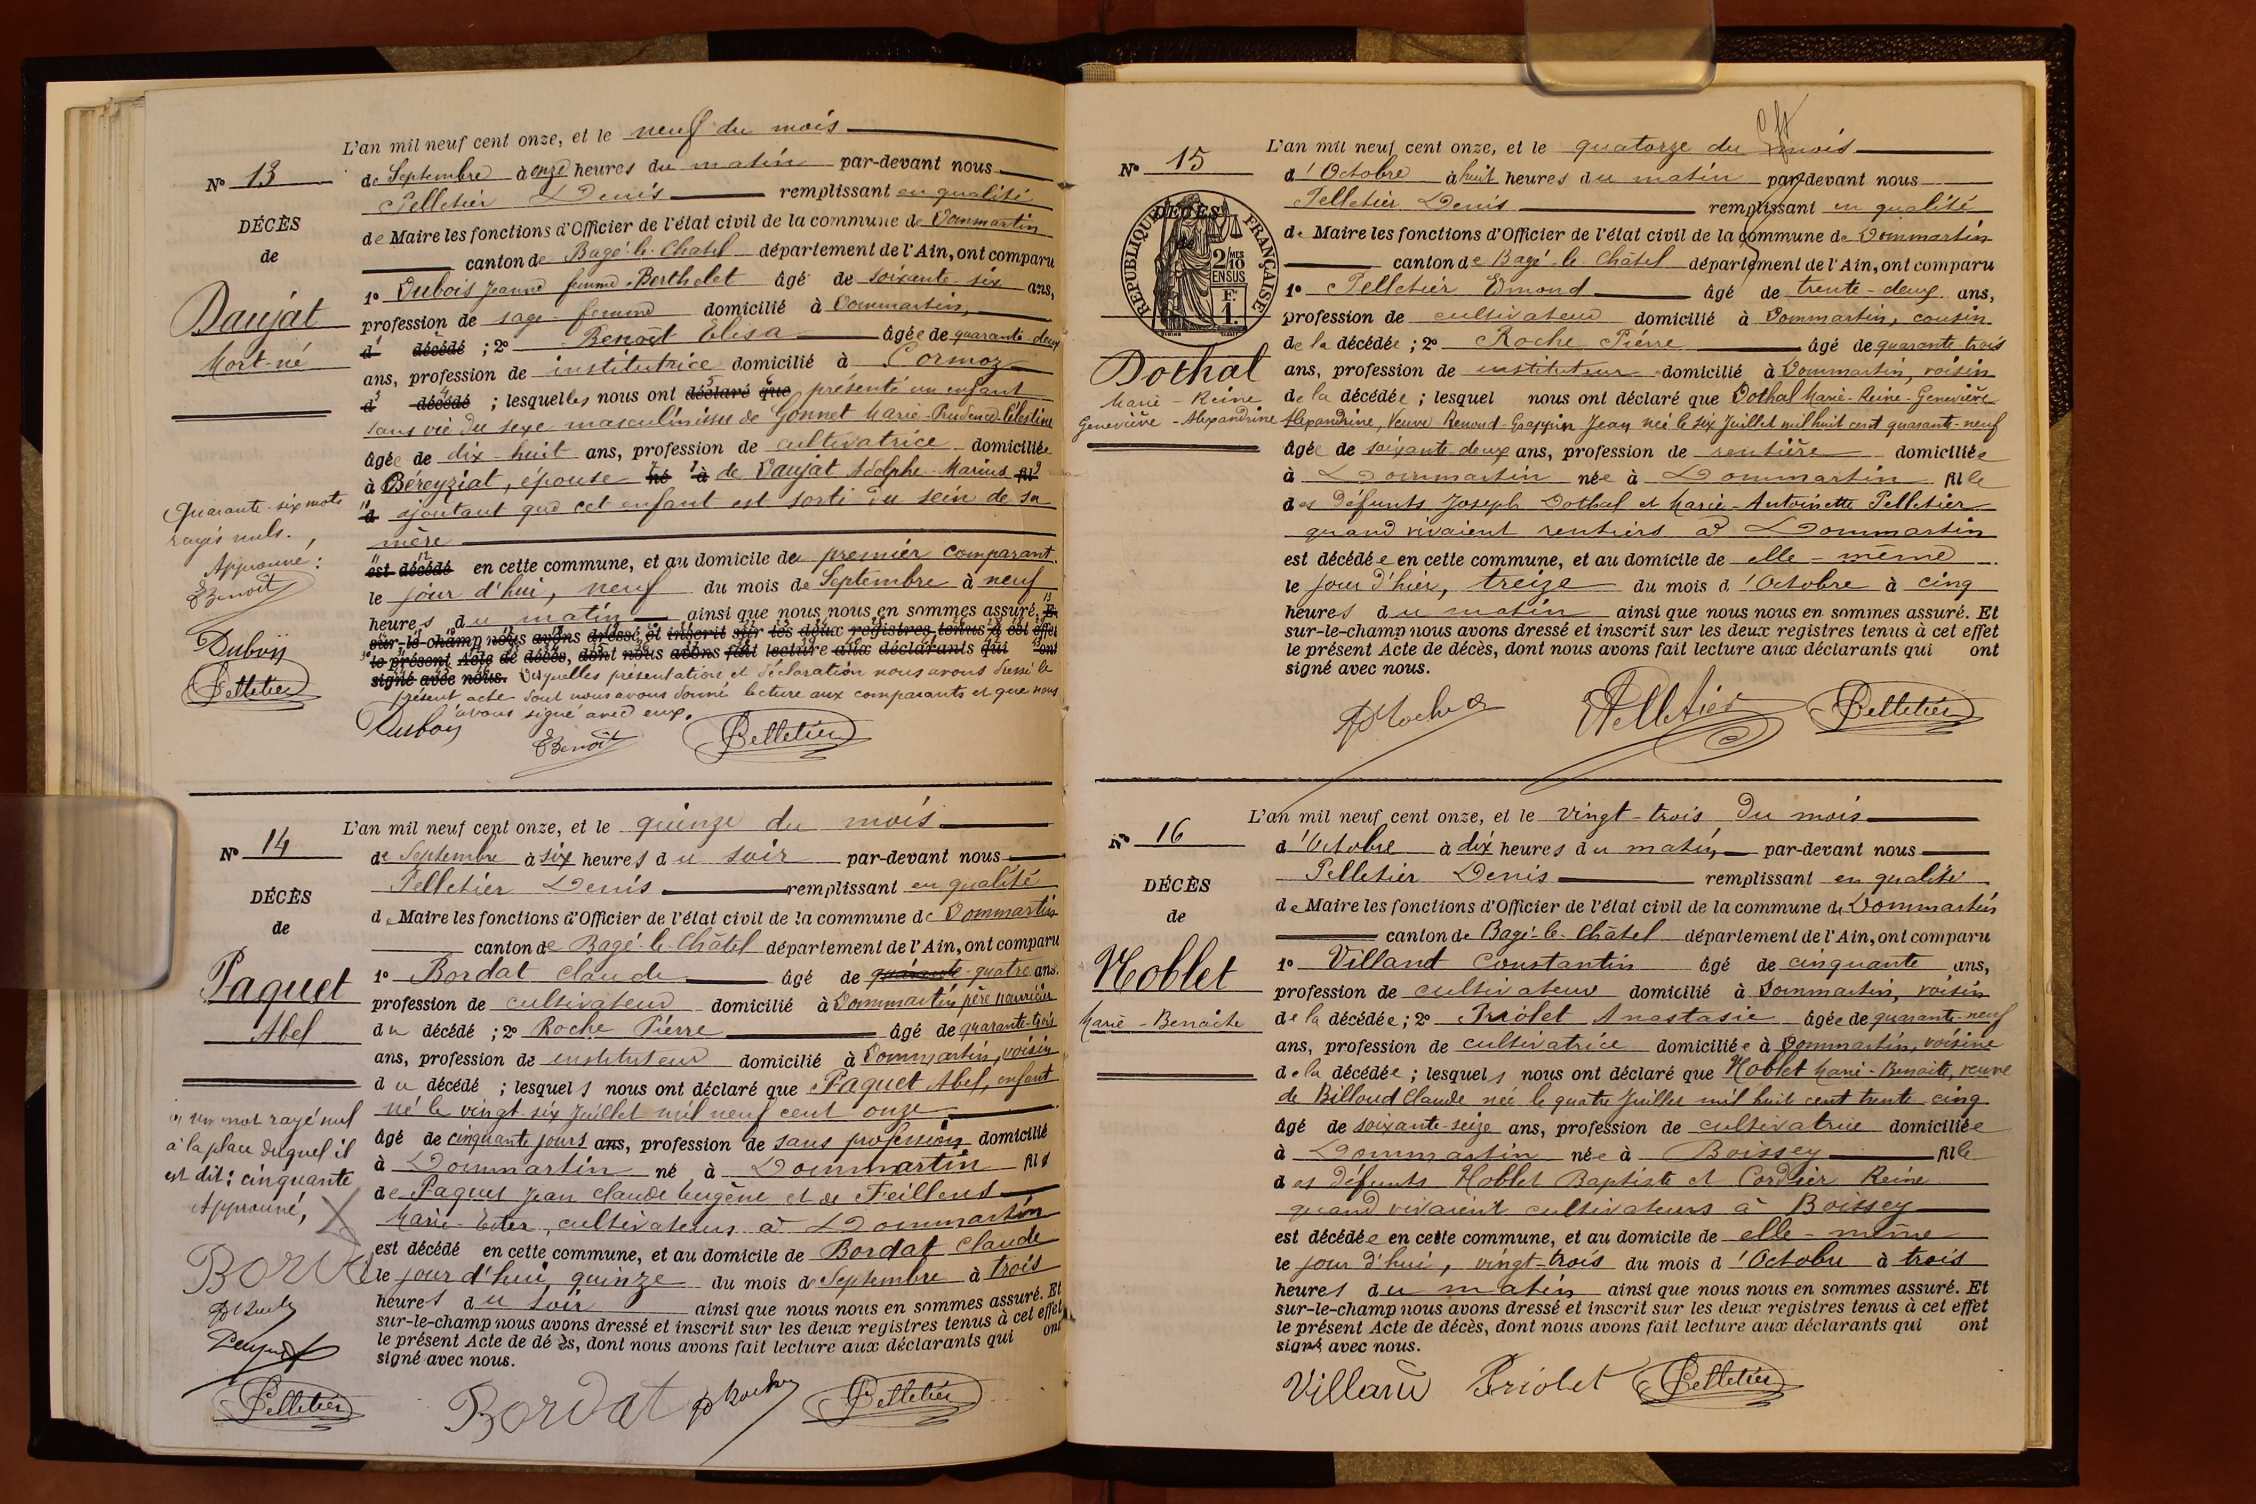 L'an mil neuf cent onze, et le neuf du mois
de Septembre à onze heures du matin par-devant nous
Pelletier Denis remplissant en qualité
de Maire les fonctions d'Officier de l'état civil de la commune de Dommartin
canton de Bagé-le-Chatel département de l'Ain, ont comparu
1º Dubois Jeanne femme Berthelet âgé de soixante-six ans,
profession de sage-femme domicilié à Dommartin,
d décédé ; 2º Benoît Elisa âgée de quarante-deux
ans, profession de institutrice domicilié à Cormoz
d décédé ; lesquelles nous ont déclaré que présenté un enfant
sans vie du sexe masculin issu de Gonnet Marie-Prudence-Célestine
âgée de dix-huit ans, profession de cultivatrice domiciliée
à Béreyziat, épouse né à de Daujat Adolphe-Marius fil
d ajoutant que cet enfant est sorti du sein de sa
mère
est décédé en cette commune, et au domicile de premier comparant
le jour d'hui, neuf du mois de Septembre à neuf
heures du matin ainsi que nous nous en sommes assuré. Et
sur-le-champ nous avons dressé et inscrit sur les deux registres tenus à cet effet
le présent Acte de décès, dont nous avons fait lecture aux déclarants qui ont
signé avec nous. Desquelles présentation et déclaration nous avons dressé le
présent acte dont nous avons donné lecture aux comparants et que nous
avons signé avec eux.
Dubois EBenoît Pelletier
Nº 13
DÉCÈS
de
Daujat
Mort-né
Quarante-six mots
rayés nuls.
Approuvé :
EBenoît
Dubois
Pelletier
L'an mil neuf cent onze, et le quinze du mois
de Septembre à six heures du soir par-devant nous
Pelletier Denis remplissant en qualité
de Maire les fonctions d'Officier de l'état civil de la commune de Dommartin
canton de Bagé-le-Châtel département de l'Ain, ont comparu
1º Bordat Claude âgé de quarante-quatre ans.
profession de cultivateur domicilié à Dommartin père nourricier
du décédé ; 2º Roche Pierre âgé de quarante-trois
ans, profession de instituteur domicilié à Dommartin, voisin
du décédé ; lesquels nous ont déclaré que Paquet Abel, enfant
né le vingt-six Juillet mil neuf cent onze
âgé de cinquante jours ans, profession de sans profession domicilié
à Dommartin né à Dommartin fils
de Paquet Jean Claude Eugène et de Feillens
Marie-Ester, cultivateurs à Dommartin
est décédé en cette commune, et au domicile de Bordat Claude
le jour d'hui, quinze du mois de Septembre à trois
heures du soir ainsi que nous nous en sommes assuré. Et
sur-le-champ nous avons dressé et inscrit sur les deux registres tenus à cet effet
le présent Acte de décès, dont nous avons fait lecture aux déclarants qui ont
signé avec nous.
Bordat PRoche Pelletier
Nº 14
DÉCÈS
de
Paquet
Abel
un mot rayé nul
à la place duquel il
est dit : cinquante
Approuvé,
Pelletier
L'an mil neuf cent onze, et le quatorze du mois
d'Octobre à huit heures du matin par-devant nous
Pelletier Denis remplissant en qualité
de Maire les fonctions d'Officier de l'état civil de la commune de Dommartin
canton de Bagé-le-Châtel département de l'Ain, ont comparu
1º Pelletier Edmond âgé de trente-deux ans,
profession de cultivateur domicilié à Dommartin, cousin
de la décédée ; 2º Roche Pierre âgé de quarante-trois
ans, profession de instituteur domicilié à Dommartin, voisin
de la décédée ; lesquel nous ont déclaré que Dothal Marie-Reine-Geneviève
Alexandrine, Veuve Renoud-Grappin Jean née le six Juillet mil huit cent quarante-neuf
âgée de soixante-deux ans, profession de rentière domiciliée
à Dommartin née à Dommartin fille
des défunts Joseph Dothal et Marie-Antoinette Pelletier
quand vivaient rentiers à Dommartin
est décédée en cette commune, et au domicile de elle-même
le jour d'hier, treize du mois d'Octobre à cinq
heures du matin ainsi que nous nous en sommes assuré. Et
sur-le-champ nous avons dressé et inscrit sur les deux registres tenus à cet effet
le présent Acte de décès, dont nous avons fait lecture aux déclarants qui ont
signé avec nous.
PRoche EPelletier Pelletier
Nº 15
DÉCÈS
de
RÉPUBLIQUE FRANÇAISE
2/10 MES
EN SUS
1 F.
Dothal
Marie-Reine
Geneviève-Alexandrine
L'an mil neuf cent onze, et le vingt-trois du mois
d'Octobre à dix heures du matin, par-devant nous
Pelletier Denis remplissant en qualité
de Maire les fonctions d'Officier de l'état civil de la commune de Dommartin
canton de Bagé-le-Châtel département de l'Ain, ont comparu
1º Villand Constantin âgé de cinquante ans,
profession de cultivateur domicilié à Dommartin, voisin
de la décédée ; 2º Priolet Anastasie âgée de quarante-neuf
ans, profession de cultivatrice domiciliée à Dommartin, voisine
de la décédée ; lesquels nous ont déclaré que Noblet Marie-Benoite, veuve
de Billoud Claude née le quatre Juillet mil huit cent trente cinq
âgé de soixante-seize ans, profession de cultivatrice domiciliée
à Dommartin née à Boissey fille
des défunts Noblet Baptiste et Cordier Reine
quand vivaient cultivateurs à Boissey
est décédée en cette commune, et au domicile de elle-même
le jour d'hui, vingt-trois du mois d'Octobre à trois
heures du matin ainsi que nous nous en sommes assuré. Et
sur-le-champ nous avons dressé et inscrit sur les deux registres tenus à cet effet
le présent Acte de décès, dont nous avons fait lecture aux déclarants qui ont
signé avec nous.
Villand Priolet Pelletier
Nº 16
DÉCÈS
de
Noblet
Marie-Benoite